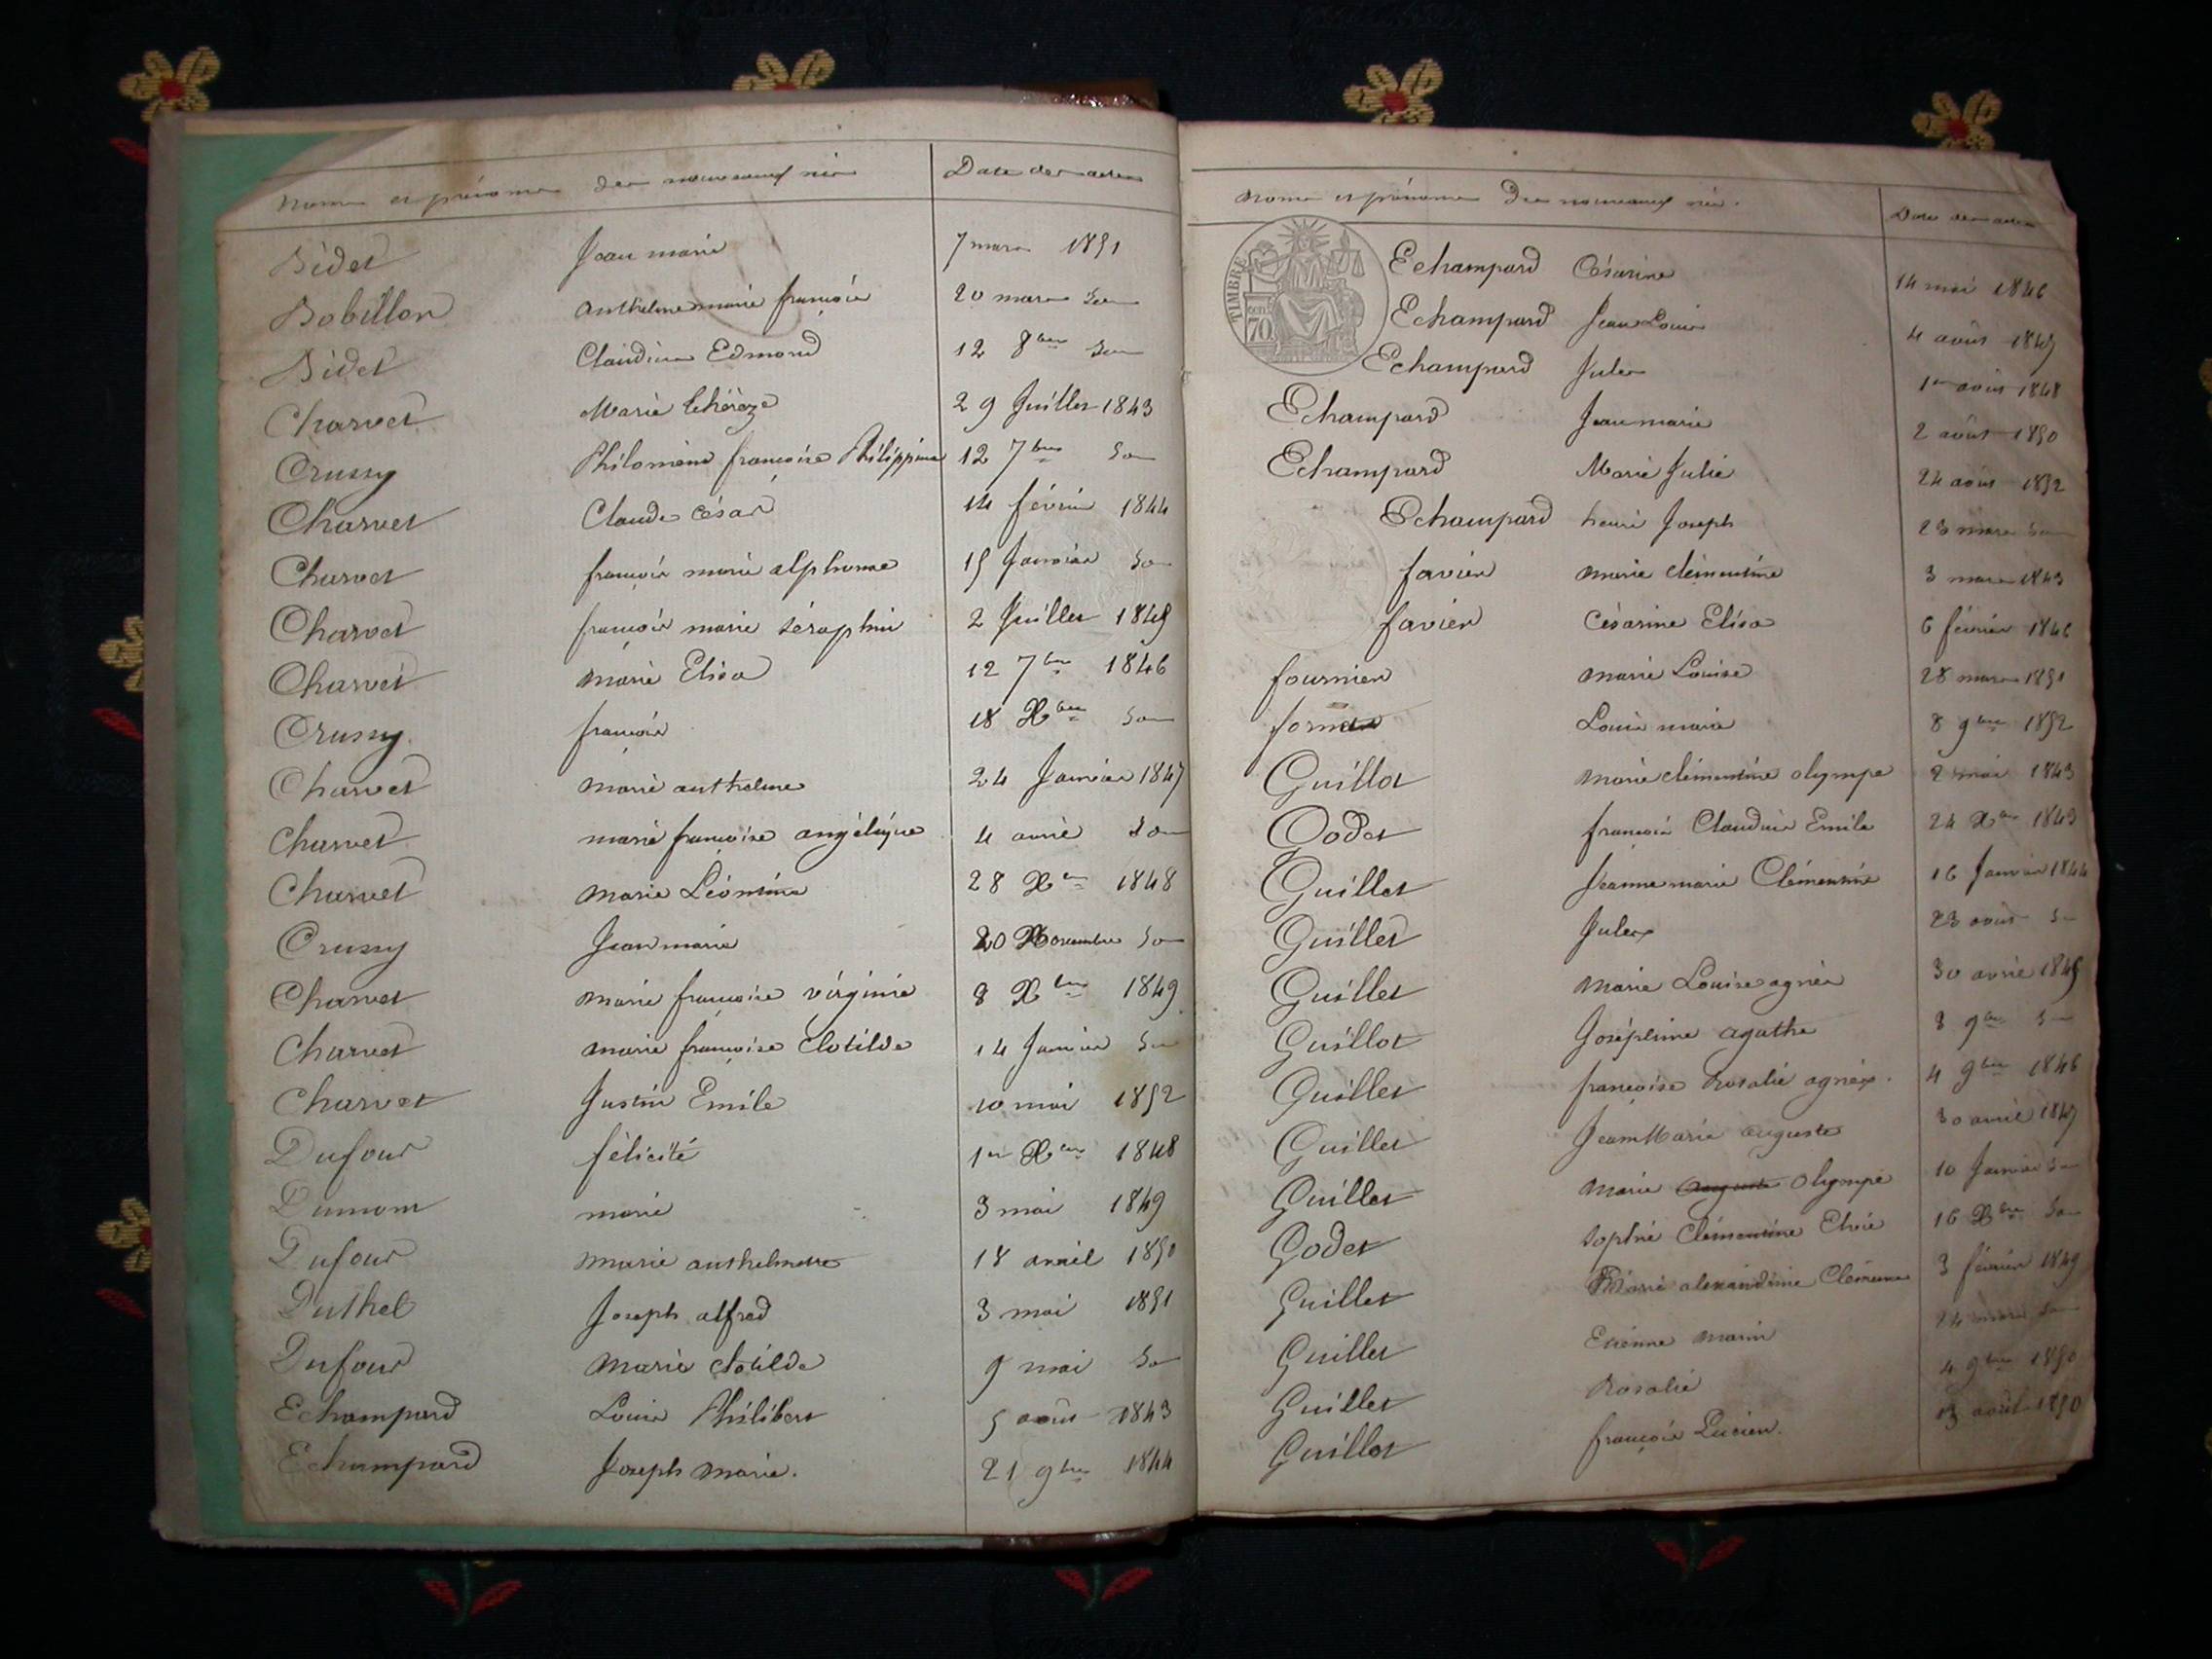 Noms et prénoms des nouveaux nés Date des actes
Bidet Jean marie 7 mars 1851
Bobillon anthelme marie françois 20 mars do
Bidet Claudius Edmond 12 8bre do
Charvet Marie théréze 29 Juillet 1843
Crussy Philomène françoise Philippine 12 7bre do
Charvet Claude César 14 février 1844
Charvet françois marie alphonse 15 Janvier do
Charvet françois marie séraphin 2 Juillet 1845
Charvet marie Elisa 12 7bre 1846
Crussy françois 18 Xbre do
Charvet marie anthelme 24 Janvier 1847
Charvet marie françoise angélique 4 avril do
Charvet marie Léontine 28 Xbre 1848
Crussy Jean marie 20 Novembre do
Charvet marie françoise virginie 8 Xbre 1849
Charvet marie françoise Clotilde 14 Janvier do
Charvet Justin Emile 10 mai 1852
Dufour félicité 1er Xbre 1848
Dumont marie 3 mai 1849
Dufour marie anthelmette 18 avril 1850
Duthel Joseph alfred 3 mai 1851
Dufour marie clotilde 9 mai do
Echampard Louis Philibert 5 août 1843
Echampard Joseph marie. 21 9bre 1844
Noms et prénoms des nouveaux nés. Date des actes
TIMBRE
70
Echampard Césarine 14 mai 1846
Echampard Jean Louis 4 août 1847
Echampard Jules 1er août 1848
Echampard Jean marie 2 août 1850
Echampard Marie Julie 24 août 1852
Echampard henri Joseph 23 mars do
favier marie clémentine 3 mars 1843
favier Césarine Elisa 6 février 1846
fournier marie Louise 28 mars 1851
Louis marie 8 9bre 1852
Guillot marie clémentine olympe 2 mai 1843
Godet françois Claudius Emile 24 Xbre 1843
Guillet Jeanne marie Clémentine 16 Janvier 1844
Guillet Jules 23 août do
Guillet Marie Louise agnès 30 avril 1845
Guillot Joséphine agathe 8 9bre do
Guillet françoise Rosalie agnès. 4 9bre 1846
Guillet Jean Marie auguste 30 avril 1847
Guillet marie auguste Olympe 10 Janvier do
Godet sophie Clémentine Elvie 16 Xbre do
Guillet Marie alexandrine Clémence 3 février 1849
Guillet Etienne marin 24 mars do
Guillet Rosalie 4 9bre 1850
Guillot françois Lucien. 13 août 1850